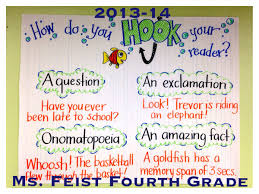 2013-14
How do you HOOK your
reader?
A question
Have you ever
been late to school?
An exclamation
Look! Trevor is riding
an elephant!
Onomatopoeia
Whoosh! The basketball
flew through the basket!
An amazing fact
A goldfish has a
memory span of 3 secs.
Ms. Feist Fourth Grade